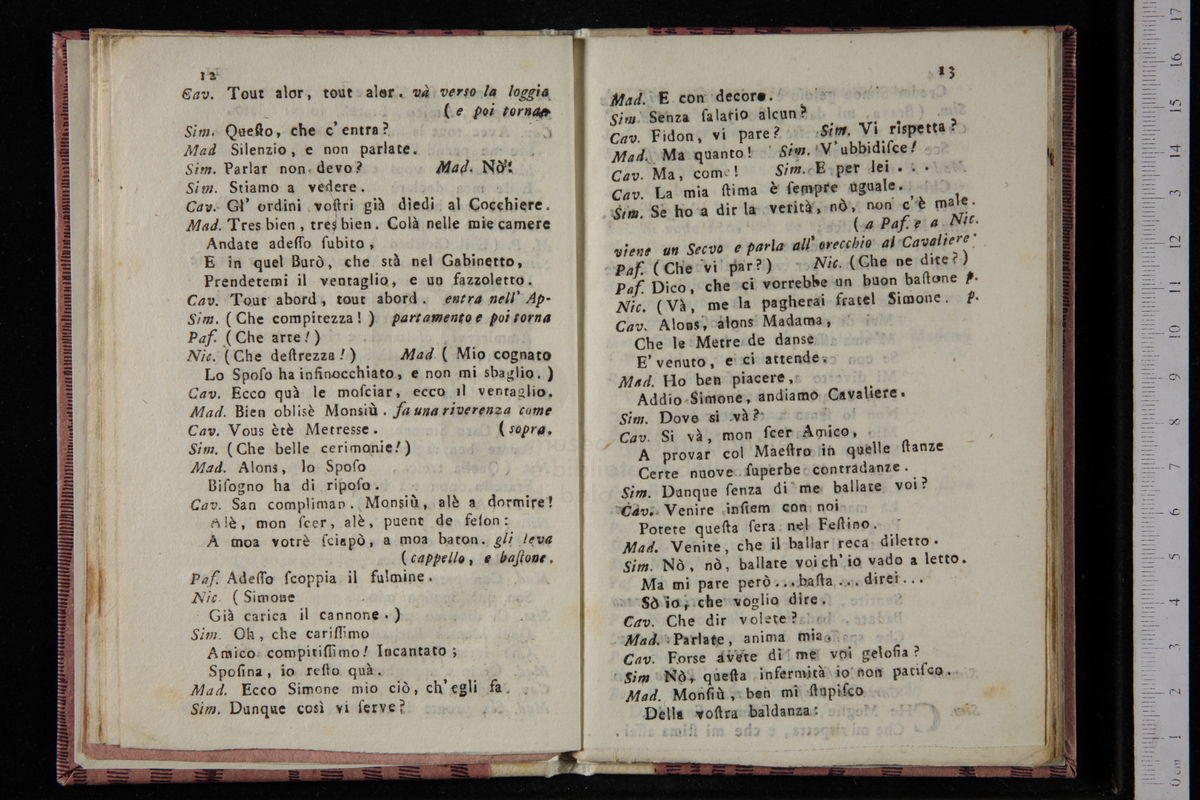 12
Cav. Tout alor, tout alor. và verso la loggia
( e poi torna
Sim. Queſto, che c'entra?
Mad Silenzio, e non parlate.
Sim. Parlar non devo? Mad. Nò:
Sim. Stiamo a vedere.
Cav. Gl' ordini voſtri già diedi al Cocchiere.
Mad. Tres bien, tres bien. Colà nelle mie camere
Andate adeſſo ſubito,
E in quel Burò, che stà nel Gabinetto,
Prendetemi il ventaglio, e un fazzoletto.
Cav. Tout abord, tout abord. entra nell' Ap-
Sim. ( Che compitezza! ) partamento e poi torna
Paſ. ( Che arte! )
Nic. ( Che deſtrezza! ) Mad ( Mio cognato
Lo Spoſo ha infinocchiato, e non mi sbaglio. )
Cav. Ecco quà le moſciar, ecco il ventaglio.
Mad. Bien oblisè Monsiù. fa una riverenza come
Cav. Vous ètè Metresse. ( sopra.
Sim. (Che belle cerimonie!)
Mad. Alons, lo Spoſo
Biſogno ha di ripoſo.
Cav. San compliman. Monsiù, alè a dormire!
Alè, mon ſcer, alè, puent de feſon:
A moa votrè ſciapò, a moa baton. gli leva
( cappello, e baſtone.
Paſ. Adeſſo ſcoppia il fulmine.
Nic ( Simone
Già carica il cannone. )
Sim. Oh, che cariſſimo
Amico compitiſſimo! Incantato;
Spoſina, io reſto quà.
Mad. Ecco Simone mio ciò, ch'egli fa.
Sim. Dunque così vi ſerve?
13
Mad. E con decoro.
Sim. Senza ſalario alcun?
Cav. Fidon, vi pare? Sim. Vi riſpetta?
Mad. Ma quanto! Sim. V'ubbidiſce!
Cav. Ma, come! Sim. E per lei . .
Cav. La mia ſtima è ſempre uguale.
Sim. Se ho a dir la verità, nò, non c'è male.
( a Paſ. e a Nic.
viene un Secvo e parla all' orecchio al Cavaliere
Paſ. ( Che vi par? ) Nic. ( Che ne dite? )
Paſ. Dico, che ci vorrebbe un buon baſtone p.
Nic. (Và, me la pagherai fratel Simone. p.
Cav. Alons, alons Madama,
Che le Metre de danse
E' venuto, e ci attende.
Mad. Ho ben piacere,
Addio Simone, andiamo Cavaliere.
Sim. Dove si và?
Cav. Si và, mon ſcer Amico,
A provar col Maeſtro in quelle ſtanze
Certe nuove ſuperbe contradanze.
Sim. Dunque ſenza di me ballate voi?
Cav. Venire inſiem con noi
Potete queſta ſera nel Feſtino.
Mad. Venite, che il ballar reca diletto.
Sim. Nò, nò, ballate voi ch'io vado a letto.
Ma mi pare però...baſta...direi...
Sò io, che voglio dire.
Cav. Che dir volete?
Mad. Parlate, anima mia.
Cav. Forse avete di me voi geloſia?
Sim Nò, queſta infermità io non patiſco.
Mad. Monſiù, ben mi ſtupiſco
Della voſtra baldanza: